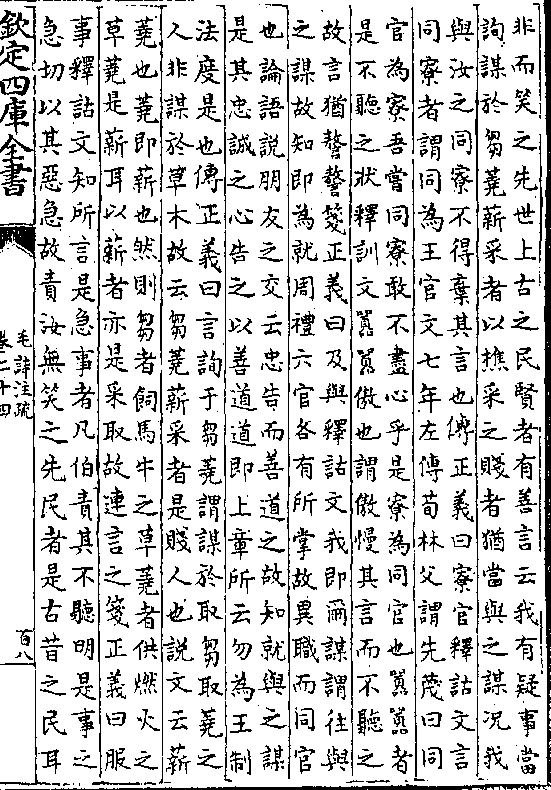 非而笑之先世上古之民賢者有善言云我有疑事當
詢謀於芻蕘薪采者以樵采之賤者猶當與之謀況我
與汝之同寮不得棄其言也傳正義曰寮官釋詁文言
同寮者謂同為王官文七年左傳荀林父謂先蔑曰同
官為寮吾嘗同寮敢不盡心乎是寮為同官也囂囂者
是不聽之狀釋訓文囂囂傲也謂傲慢其言而不聽之
故言猶謷謷箋正義曰及與釋詁文我即爾謀謂往與
之謀故知即為就周禮六官各有所掌故異職而同官
也論語說朋友之交云忠告而善道之故知就與之謀
是其忠誠之心告之以善道道即上章所云勿為王制
法度是也傳正義曰言詢于芻蕘謂謀於取芻取蕘之
人非謀於草木故云芻蕘薪采者是賤人也說文云薪
蕘也蕘即薪也然則芻者飼馬牛之草蕘者供燃火之
草蕘是薪耳以薪者亦是采取故連言之箋正義曰服
事釋詁文知所言是急事者凡伯責其不聽明是事之
急切以其惡急故責汝無笑之先民者是古昔之民耳
欽定四庫全書
毛詩注疏
卷二十四
百八